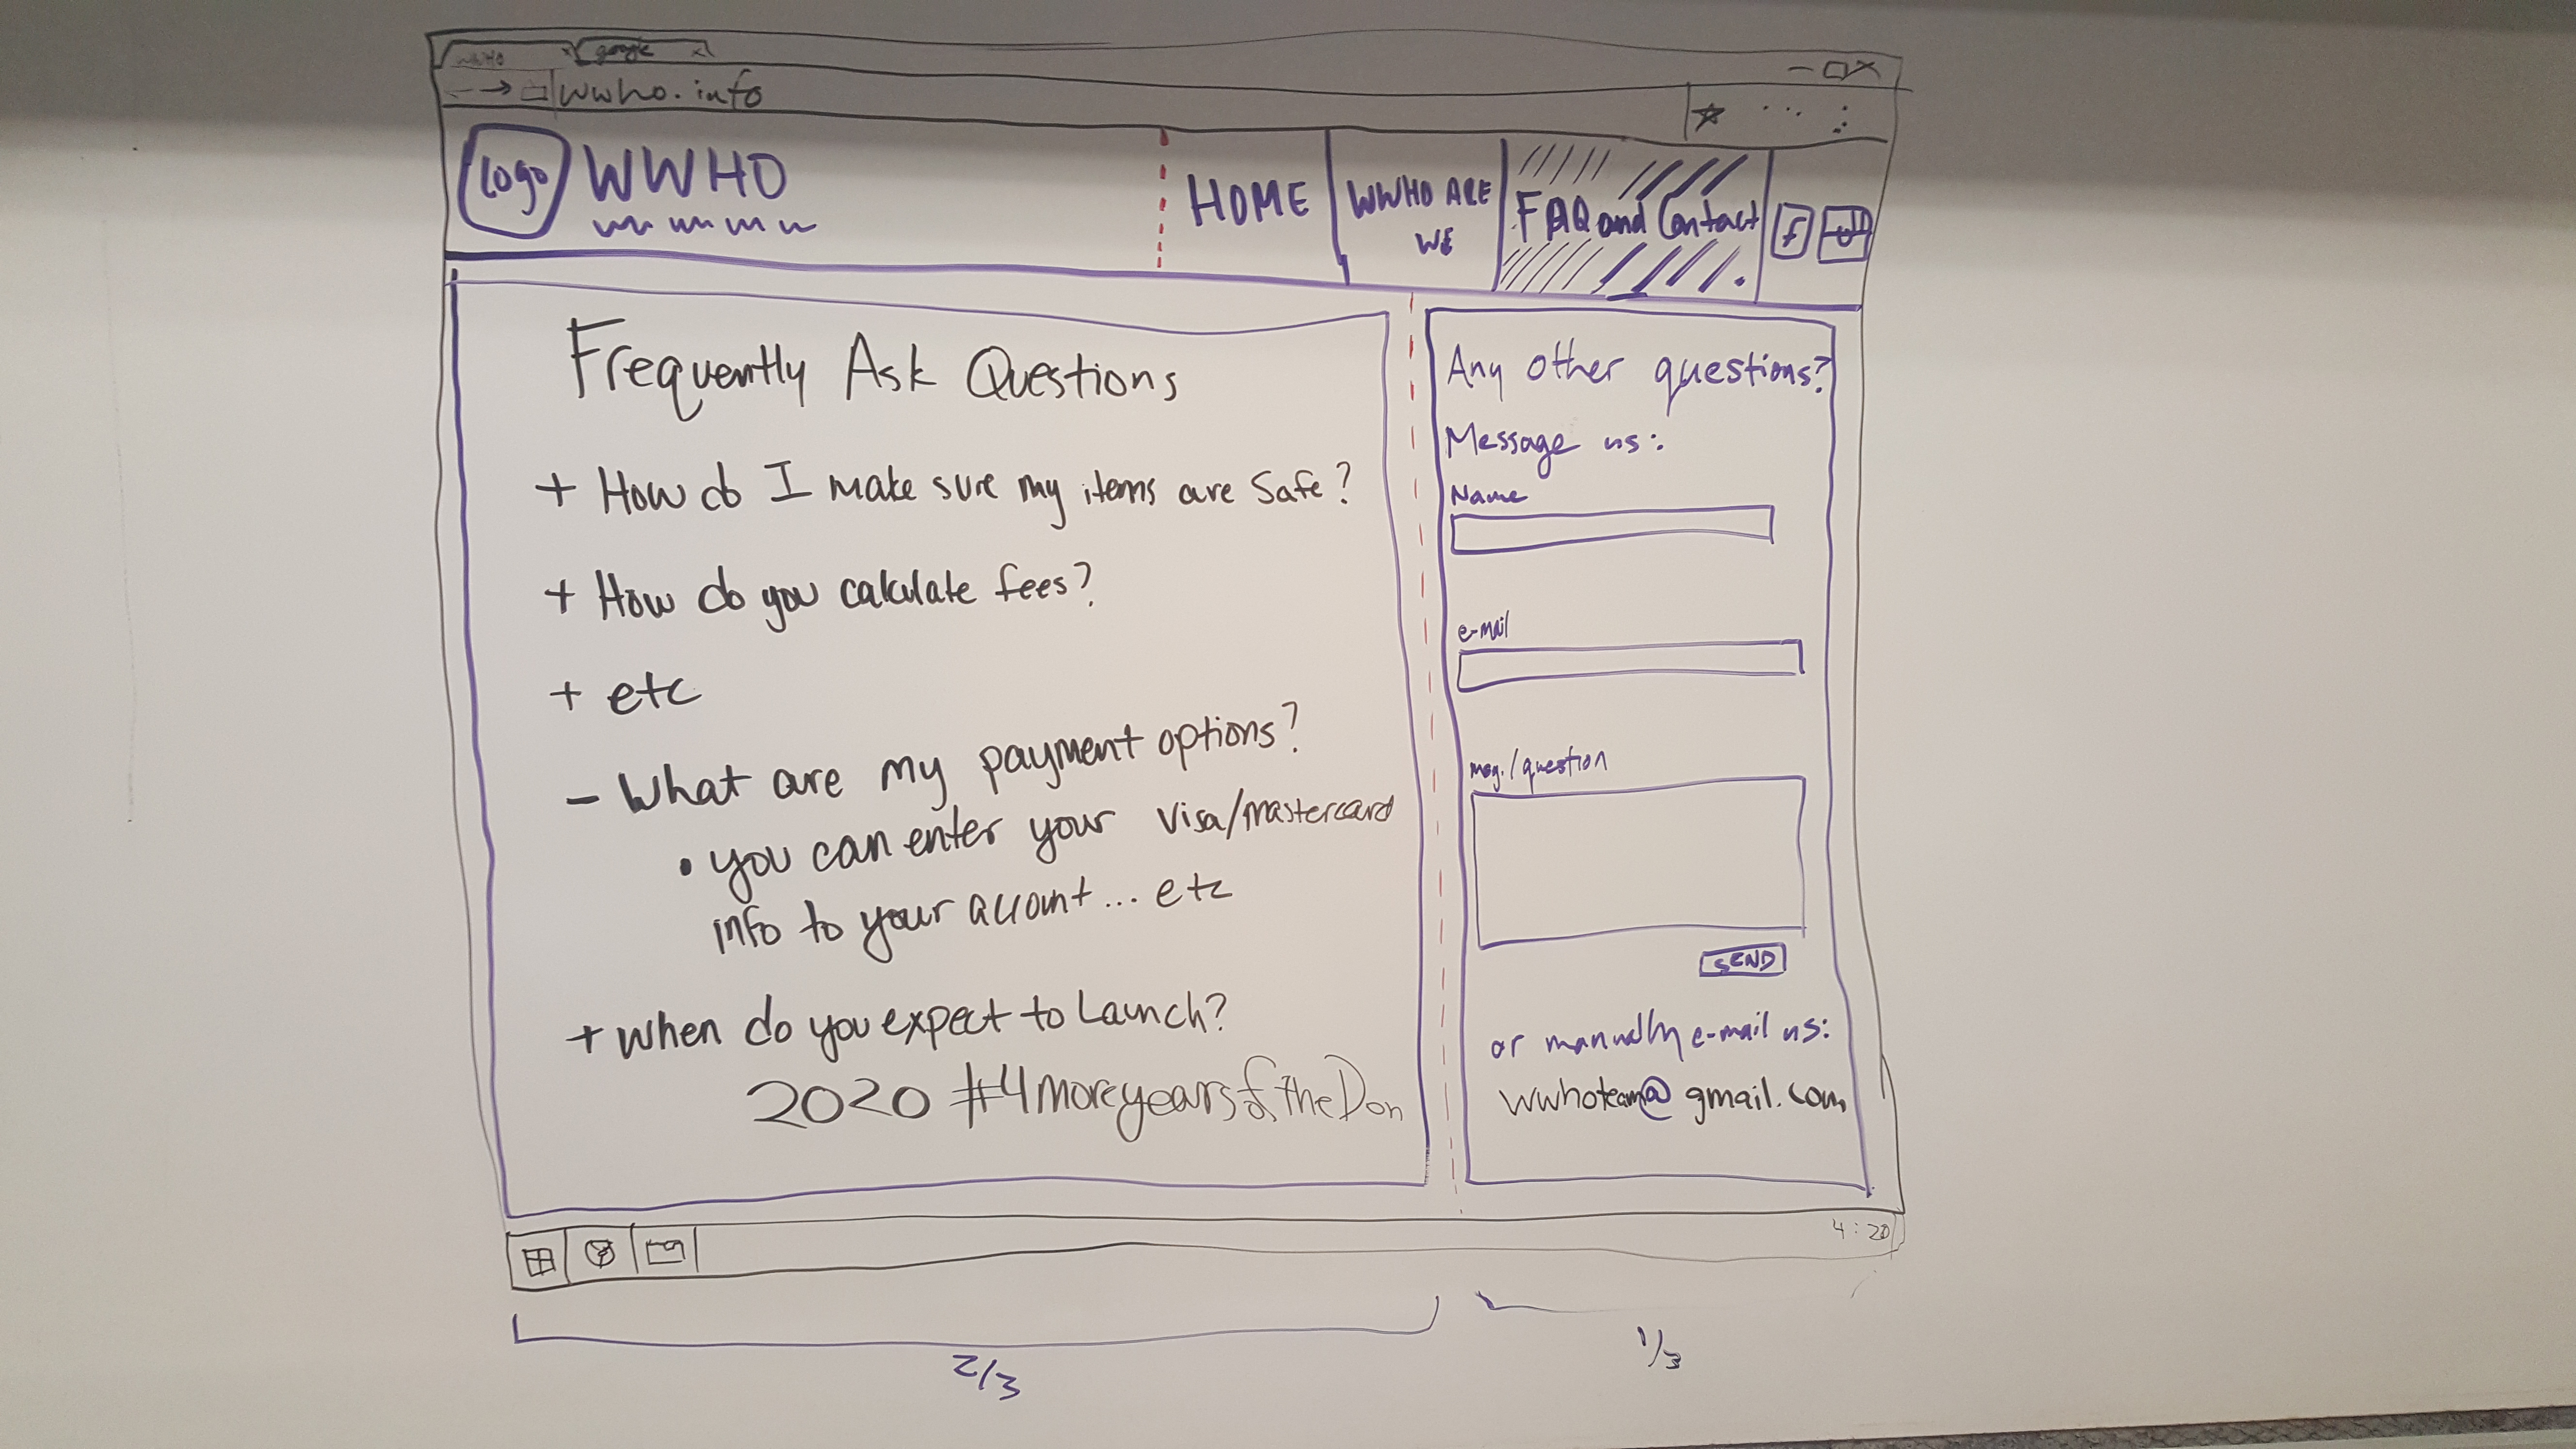 WWHO
google
wwho.info
logo
WWHO
HOME
WWHO ARE
WE
FAQ and Contact
f
Frequently Ask Questions
+ How do I make sure my items are safe?
+ How do you calculate fees?
+ etc
- What are my payment options?
• you can enter your visa/mastercard
info to your account... etc
+ when do you expect to Launch?
2020 #4moreyearsoftheDon
Any other questions?
Message us:
Name
e-mail
msg./question
SEND
or manually e-mail us:
wwhoteam@gmail.com
4:20
2/3
1/3